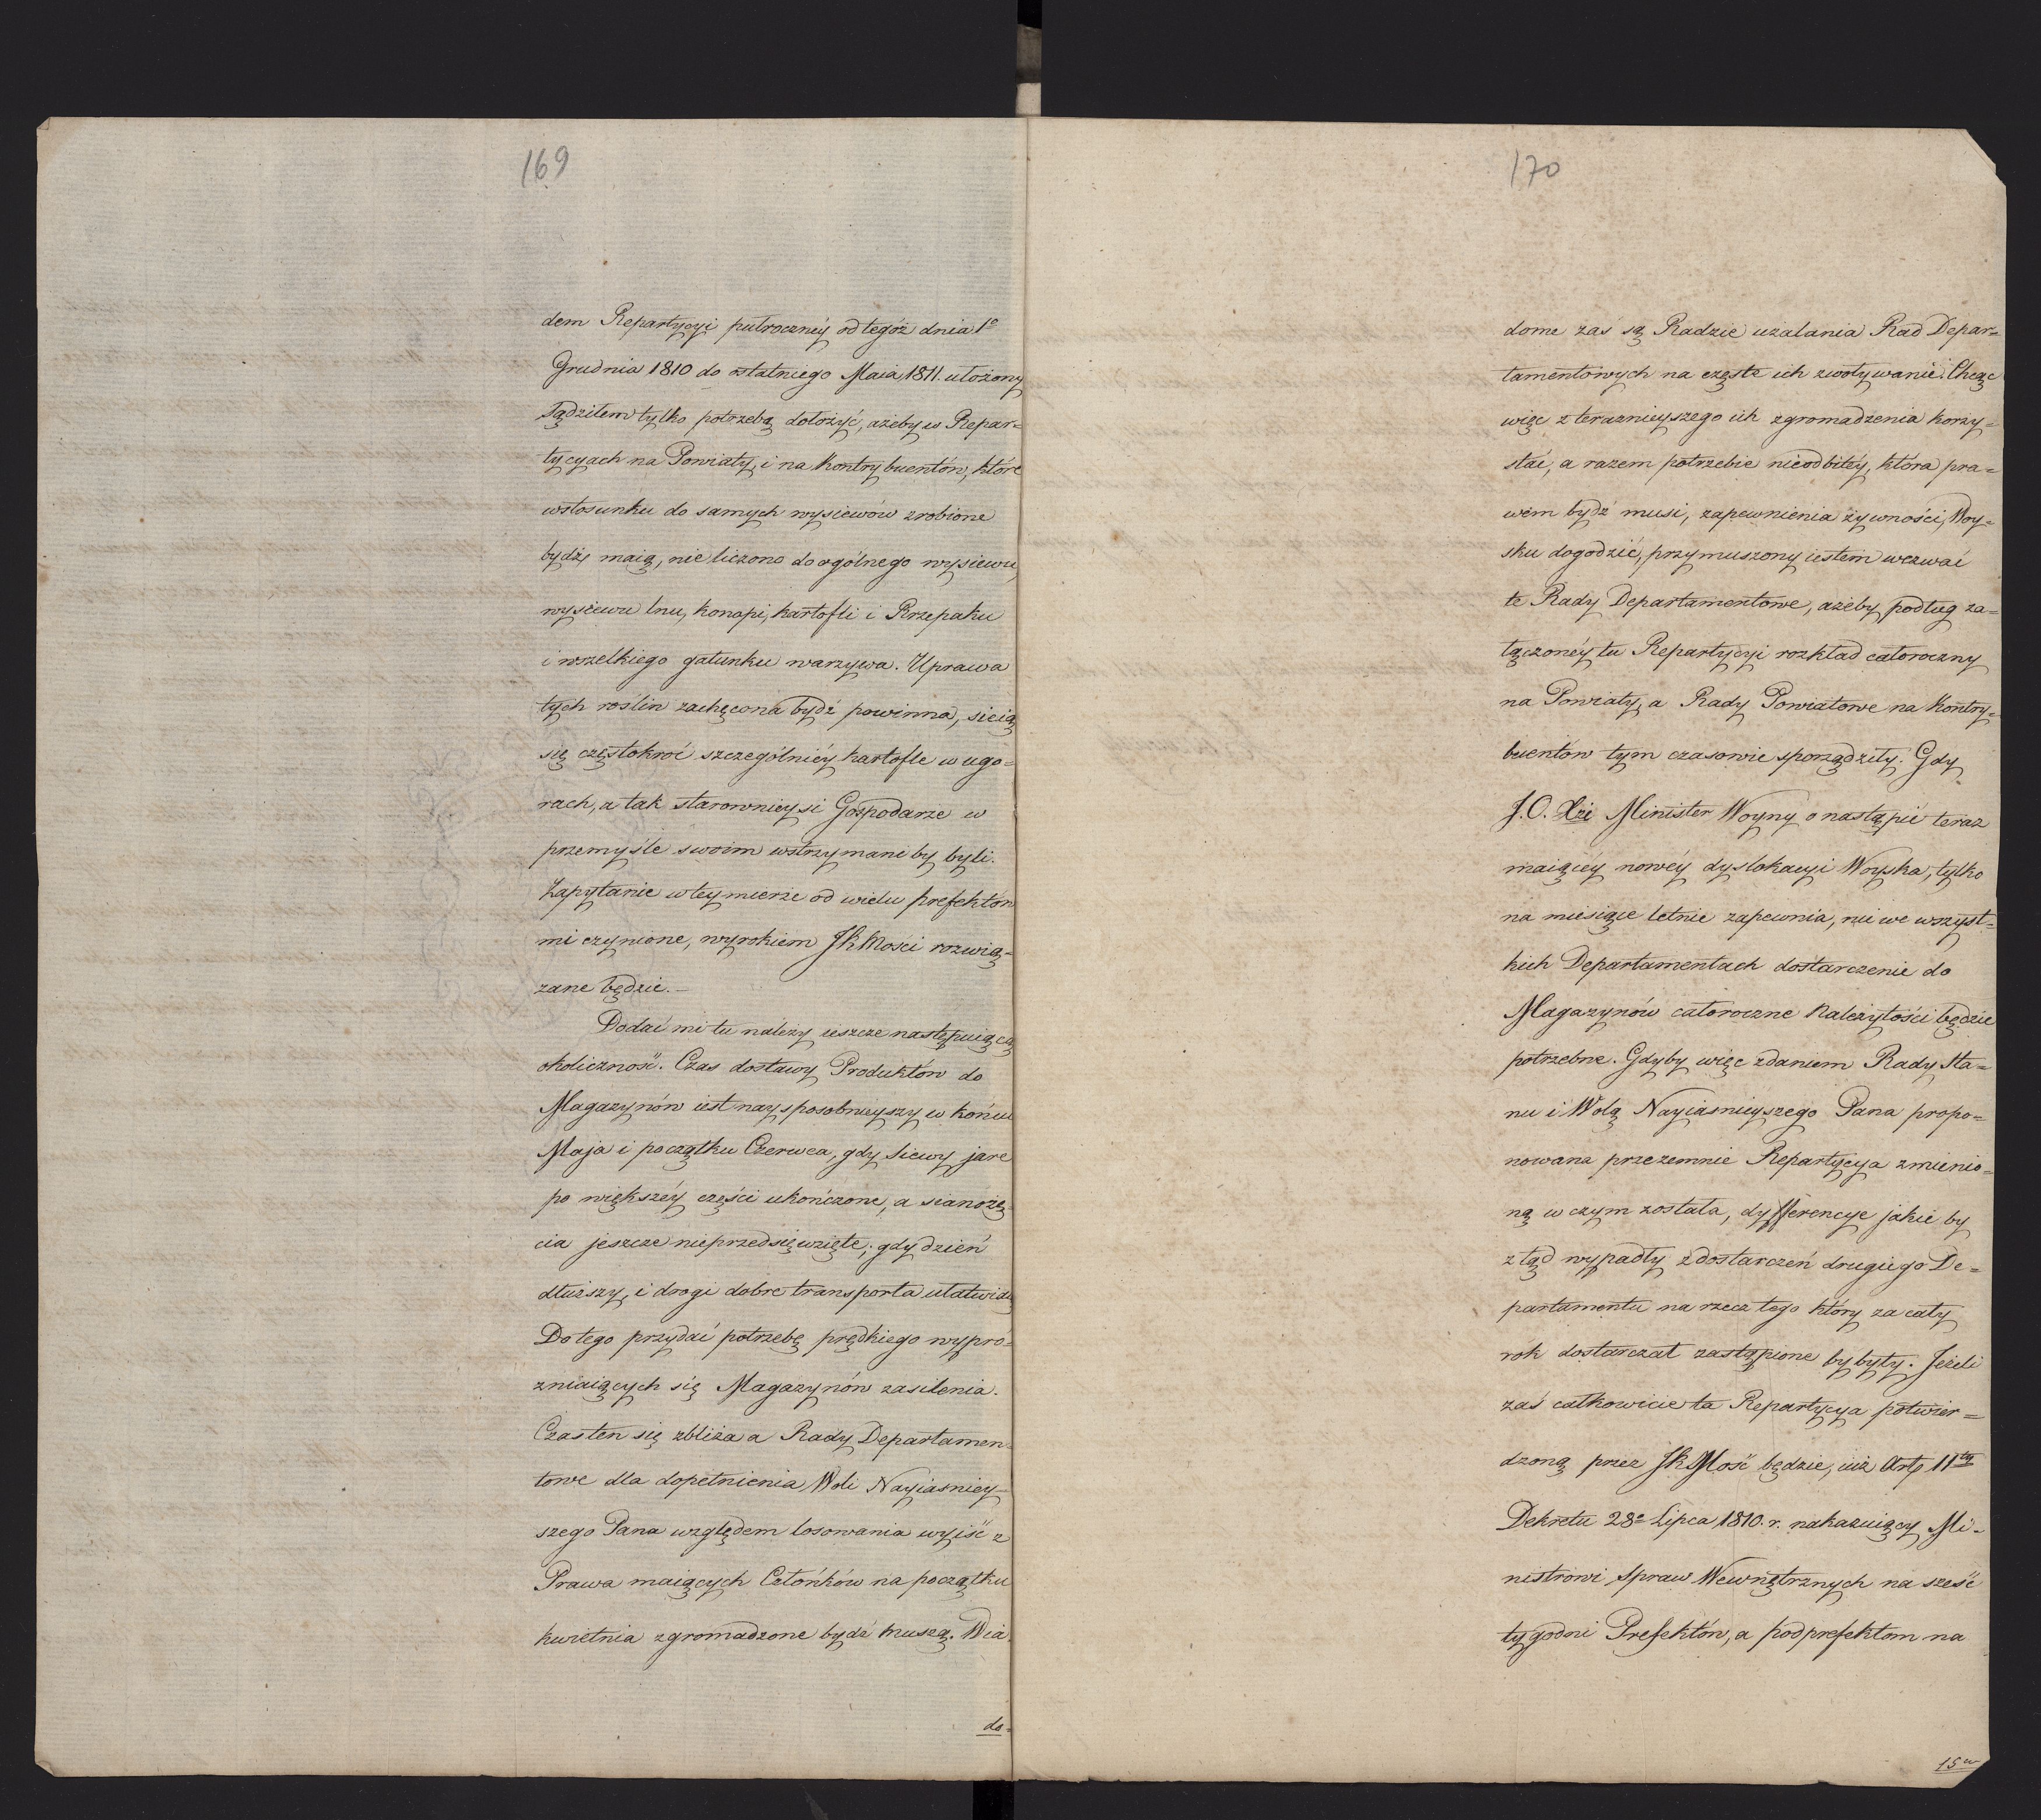 169
dem Repartycyi pułroczney od tegóż dnia 1º
Grudnia 1810 do ostatniego Maia 1811. ułożony
Sądziłem tylko potrzebą dołożyć, ażeby w Repar=
tycyach na Powiaty, i na Kontrybuentów, które
wstosunku do samych wysiewów zrobione
bydź maią, nie liczono do ogólnego wysiewu,
wysiewu lnu, konopi, kartofli i Rzepaku
i wszelkiego gatunku warzywa. Uprawa
tych roślin zachęcona bydź powinna, sieią
się częstokroć szczególniéy kartofle w ugo=
rach, a tak starownieysi Gospodarze w
przemyśle swoim wstrzymani by byli.
Zapytanie wtey mierze od wielu prefektów
mi czynione, wyrokiem JKMości rozwią=
zane będzie.—
Dodać mi tu należy ieszcze następuiącą
okoliczność. Czas dostawy Produktów do
Magazynów iest naysposobnieyszy w końcu
Maja i początku Czerwca, gdy siewy jare
po większéy części ukończone, a sianożę
cia jeszcze nieprzedsięwzięte; gdy dzień
dłuższy, i drogi dobre transporta ułatwia
Do tego przydać potrzebę prędkiego wypró=
zniaiących się Magazynów zasilenia.
Czas ten się zbliża a Rady Departamen=
towe dla dopełnienia Woli Nayiaśniey=
szego Pana względem losowania wyiść z
Prawa maiących Członków na początku
kwietnia zgromadzone bydź muszą. Wia
do=
170
dome zaś są Radzie użalania Rad Depar=
tamentowych na częste ich zwoływanie. Chcąc
więc z teraznieyszego ich zgromadzenia korzy=
stać, a razem potrzebie nieodbitéy, która pra=
wem bydź musi, zapewnienia żywności Woy=
sku dogodzić, przymuszony iestem wezwać
te Rady Departamentowe, ażeby podług za=
łączonéy tu Repartycyi rozkład całoroczny
na Powiaty, a Rady Powiatowe na Kontry=
buentów tym czasowie sporządziły. Gdy
J.O. Xże Minister Woyny o nastąpić teraz
maiącéy nowéy dyslokacyi Woyska, tylko
na miesiące letnie zapewnia, nie we wszyst=
kich Departamentach dostarczenie do
Magazynów całoroczne Należytości będzie
potrzebne. Gdyby więc zdaniem Rady Sta=
nu i Wolą Nayiaśnieyszego Pana propo=
nowana przezemnie Repartycya zmienio=
ną w czym została, dyfferencye jakie by
z tąd wypadły z dostarczeń drugiego De=
partamentu na rzecz tego który za cały
rok dostarczał zastąpione by były. Jeżeli
zaś całkowicie ta Repartycya potwier=
dzoną przez JKMość będzie, iuż Art: 11ty
Dekretu 28º Lipca 1810. r. nakazuiący Mi=
nistrowi Spraw Wewnętrznych na sześć
tygodni Prefektów, a podprefektom na
15 w